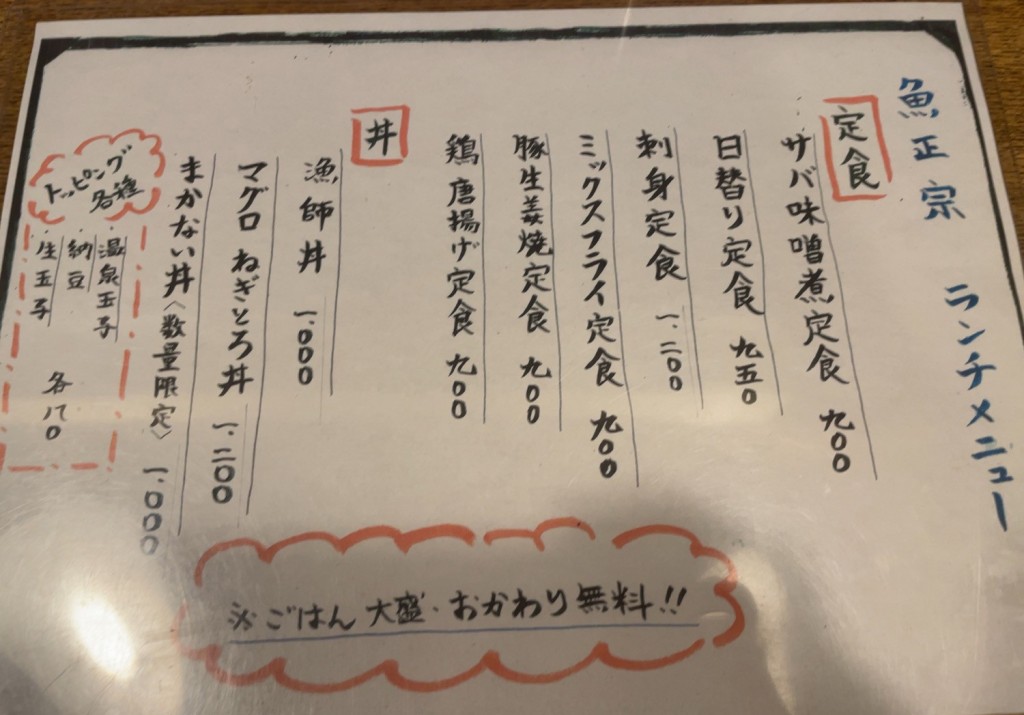 魚正宗 ランチメニュー
定食
サバ味噌煮定食 九〇〇
日替り定食 九五〇
刺身定食 一、二〇〇
ミックスフライ定食 九〇〇
豚生姜焼定食 九〇〇
鶏唐揚げ定食 九〇〇
丼
漁師丼 一、〇〇〇
マグロ ねぎとろ丼 一、二〇〇
まかない丼〈数量限定〉 一、〇〇〇
トッピング
各種
・温泉玉子
・納豆
・生玉子
各八〇
※ごはん 大盛・おかわり無料!!